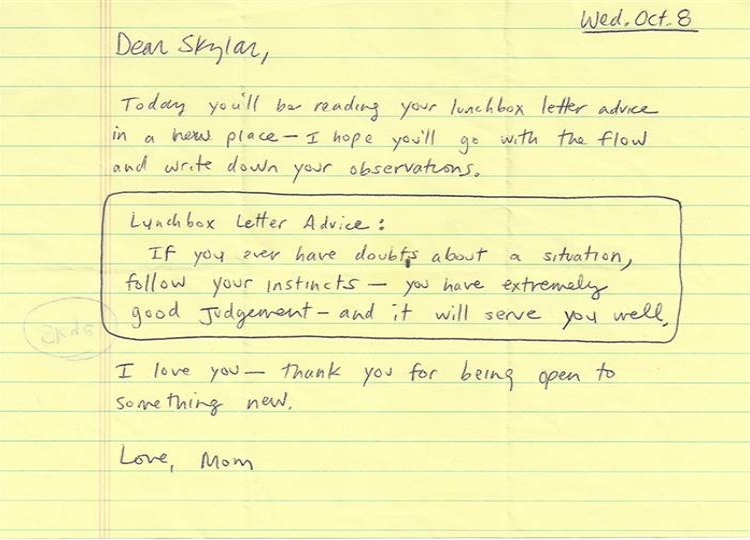 Wed. Oct. 8
Dear Skylar,
Today you'll be reading your lunchbox letter advice
in a new place – I hope you'll go with the flow
and write down your observations.
Lunchbox Letter Advice:
If you ever have doubts about a situation,
follow your instincts – you have extremely
good judgement – and it will serve you well.
I love you – thank you for being open to
something new.
Love, Mom